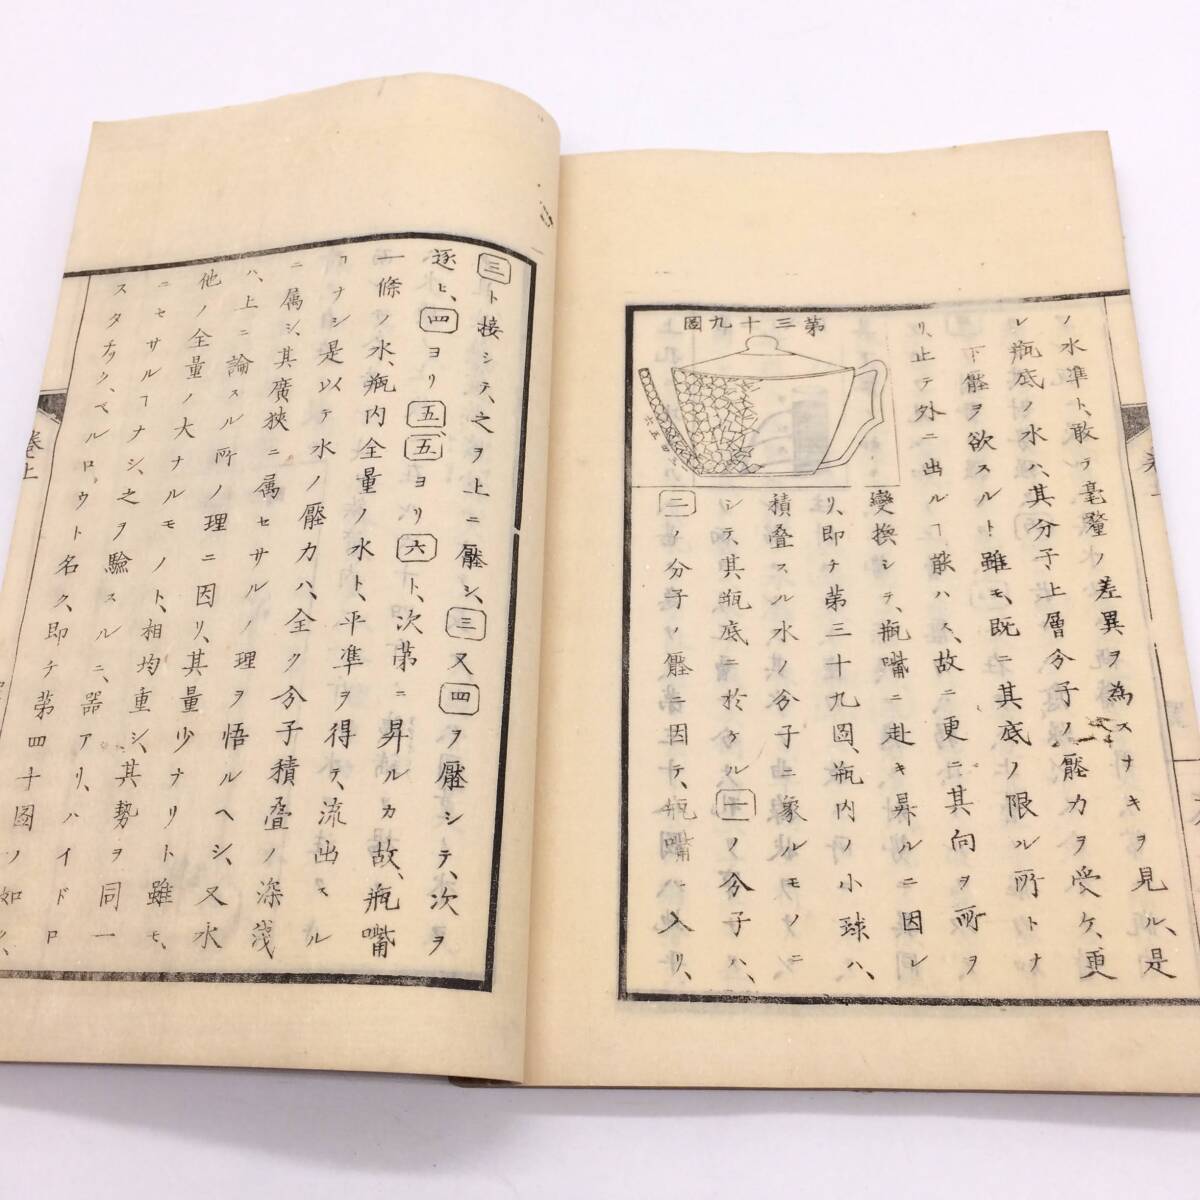 ノ水準ト、敢テ毫釐ノ差異ヲ為スナキヲ見ル、是
レ瓶底ノ水ハ、其分子上層分子ノ壓力ヲ受ケ、更
下壓ヲ欲スルト雖モ、既ニ其底ノ限ル所トナ
リ、止テ外ニ出ルヿ能ハス、故ニ更ニ其向ヲ所ヲ
變換シテ、瓶嘴ニ赴キ昇ルニ因レ
リ、即チ第三十九圖、瓶内ノ小球ハ、
積疊スル水ノ分子ニ象ルモノニ
シテ、其瓶底ニ於ケル一ノ分子ハ、
二ノ分子ノ壓ニ因テ、瓶嘴ニ入リ、
第三十九圖
四
五
六
三ト接シテ、之ヲ上ニ壓シ、三又四ヲ壓シテ、次ヲ
逐ヒ、四ヨリ五五ヨリ六ト、次第ニ昇ルカ故、瓶嘴
一條ノ水、瓶内全量ノ水ト、平準ヲ得テ、流出スル
ヿナシ是以テ水ノ壓力ハ、全ク分子積疊ノ深淺
ニ属シ、其廣狹ニ属セサルノ理ヲ悟ルヘシ、又水
ハ、上ニ論スル所ノ理ニ因リ、其量少ナリト雖モ、
他ノ全量ノ大ナルモノト、相均重シ、其勢ヲ同一
ニセサルヿナシ、之ヲ驗スルニ、器アリ、ハイドロ
スタチック、ベルロウト名ク、即チ第四十圖ノ如シ、
卷上